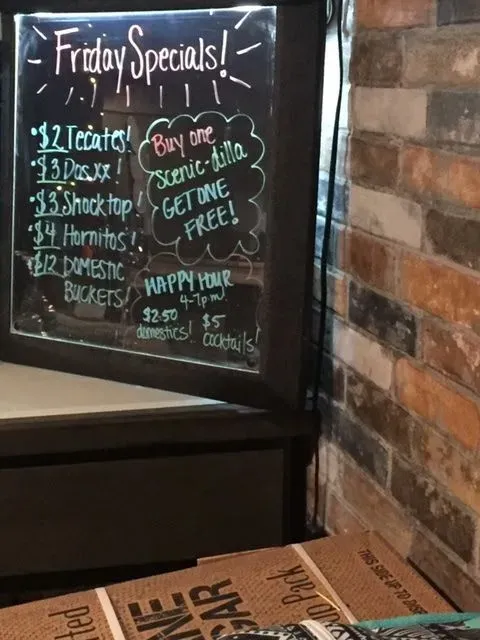 Friday Specials!
• $2 Tecates!
• $3 Dos xx!
• $3 Shocktop!
• $4 Hornitos!
• $12 DOMESTIC
BUCKETS!
Buy one
scenic-dilla
GET ONE
FREE!
HAPPY HOUR
4-7pm!
$2.50
domestics!
$5
cocktails
THIS SIDE UP TO